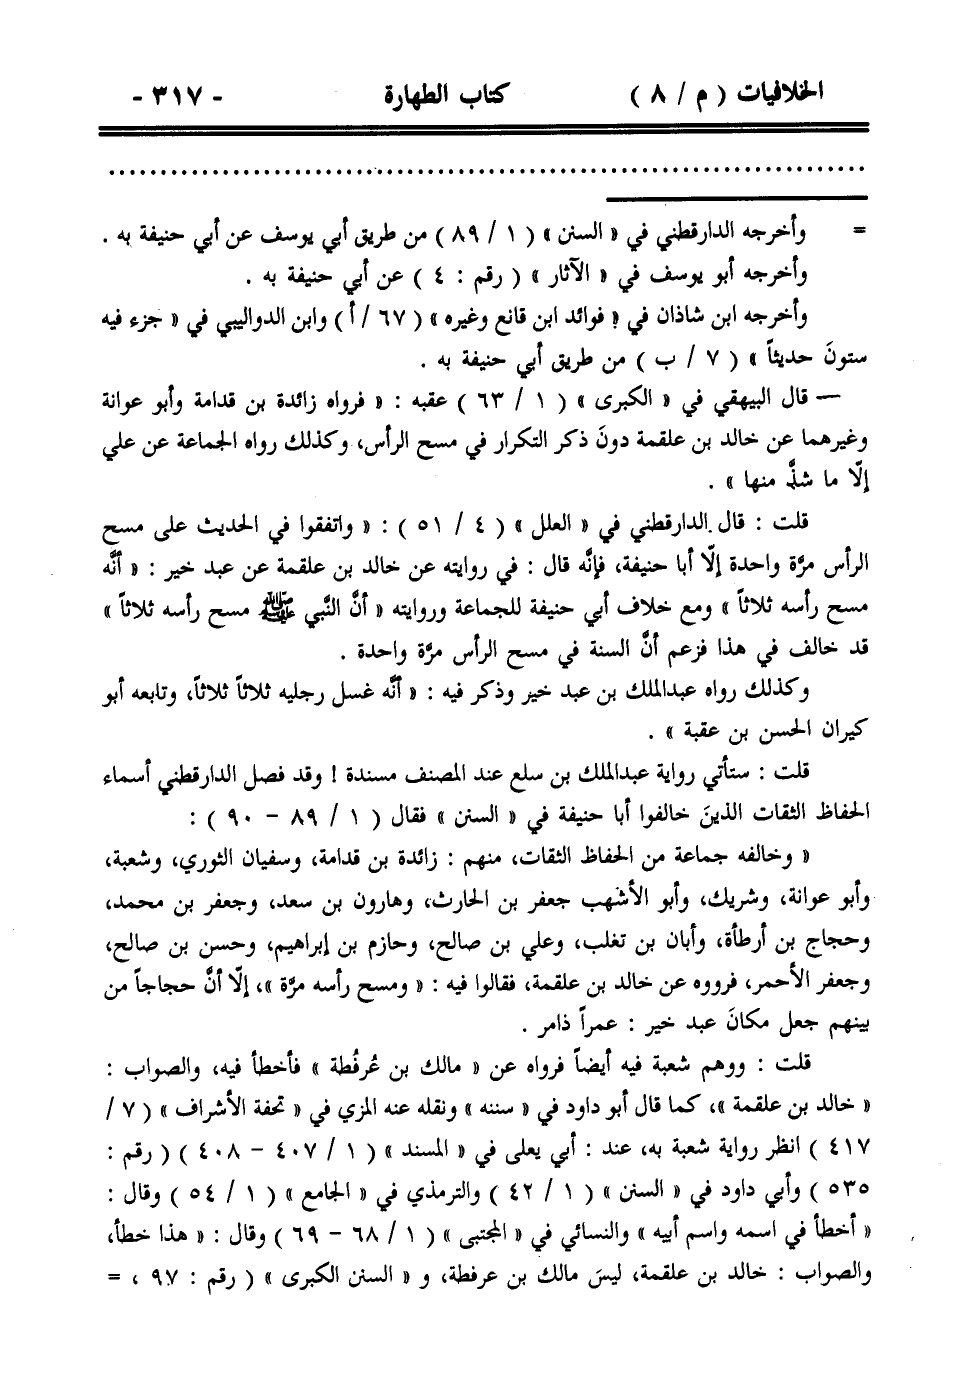 الخلافيات ( م / ٨ ) كتاب الطهارة - ٣١٧ -
= وأخرجه الدارقطني في « السنن » ( ١ / ٨٩ ) من طريق أبي يوسف عن أبي حنيفة به .
وأخرجه أبو يوسف في « الآثار » ( رقم : ٤ ) عن أبي حنيفة به .
وأخرجه ابن شاذان في « فوائد ابن قانع وغيره » ( ٦٧ / أ ) وابن الدواليبي في « جزء فيه
ستونَ حديثاً » ( ٧ / ب ) من طريق أبي حنيفة به .
— قال البيهقي في « الكبرى » ( ١ / ٦٣ ) عقبه : « فرواه زائدة بن قدامة وأبو عوانة
وغيرهما عن خالد بن علقمة دونَ ذكر التكرار في مسح الرأس، وكذلك رواه الجماعة عن علي
إلّا ما شذَّ منها » .
قلت : قال الدارقطني في « العلل » ( ٤ / ٥١ ) : « واتفقوا في الحديث على مسح
الرأس مرَّة واحدة إلّا أبا حنيفة، فإنَّه قال : في روايته عن خالد بن علقمة عن عبد خير : « أنَّه
مسح رأسه ثلاثاً » ومع خلاف أبي حنيفة للجماعة وروايته « أنَّ النَّبي ﷺ مسح رأسه ثلاثاً »
قد خالف في هذا فزعم أنَّ السنة في مسح الرأس مرَّة واحدة .
وكذلك رواه عبدالملك بن عبد خير وذكر فيه : « أنَّه غسل رجليه ثلاثاً ثلاثاً، وتابعه أبو
كيران الحسن بن عقبة » .
قلت : ستأتي رواية عبدالملك بن سلع عند المصنف مسندة ! وقد فصل الدارقطني أسماء
الحفاظ الثقات الذينَ خالفوا أبا حنيفة في « السنن » فقال ( ١ / ٨٩ - ٩٠ ) :
« وخالفه جماعة من الحفاظ الثقات، منهم : زائدة بن قدامة، وسفيان الثوري، وشعبة،
وأبو عوانة، وشريك، وأبو الأشهب جعفر بن الحارث، وهارون بن سعد، وجعفر بن محمد،
وحجاج بن أرطأة، وأبان بن تغلب، وعلي بن صالح، وحازم بن إبراهيم، وحسن بن صالح،
وجعفر الأحمر، فرووه عن خالد بن علقمة، فقالوا فيه : « ومسح رأسه مرَّة »، إلّا أنَّ حجاجاً من
بينهم جعل مكانَ عبد خير : عمراً ذامر .
قلت : ووهم شعبة فيه أيضاً فرواه عن « مالك بن عُرفُطة » فأخطأ فيه، والصواب :
« خالد بن علقمة »، كما قال أبو داود في « سننه » ونقله عنه المزي في « تحفة الأشراف » ( ٧ /
٤١٧ ) انظر رواية شعبة به، عند : أبي يعلى في « المسند » ( ١ / ٤٠٧ - ٤٠٨ ) ( رقم :
٥٣٥ ) وأبي داود في « السنن » ( ١ / ٤٢ ) والترمذي في « الجامع » ( ١ / ٥٤ ) وقال :
« أخطأ في اسمه واسم أبيه » والنسائي في « المجتبى » ( ١ / ٦٨ - ٦٩ ) وقال : « هذا خطأ،
والصواب : خالد بن علقمة، ليسَ مالك بن عرفطة، و « السنن الكبرى » ( رقم : ٩٧ ، =